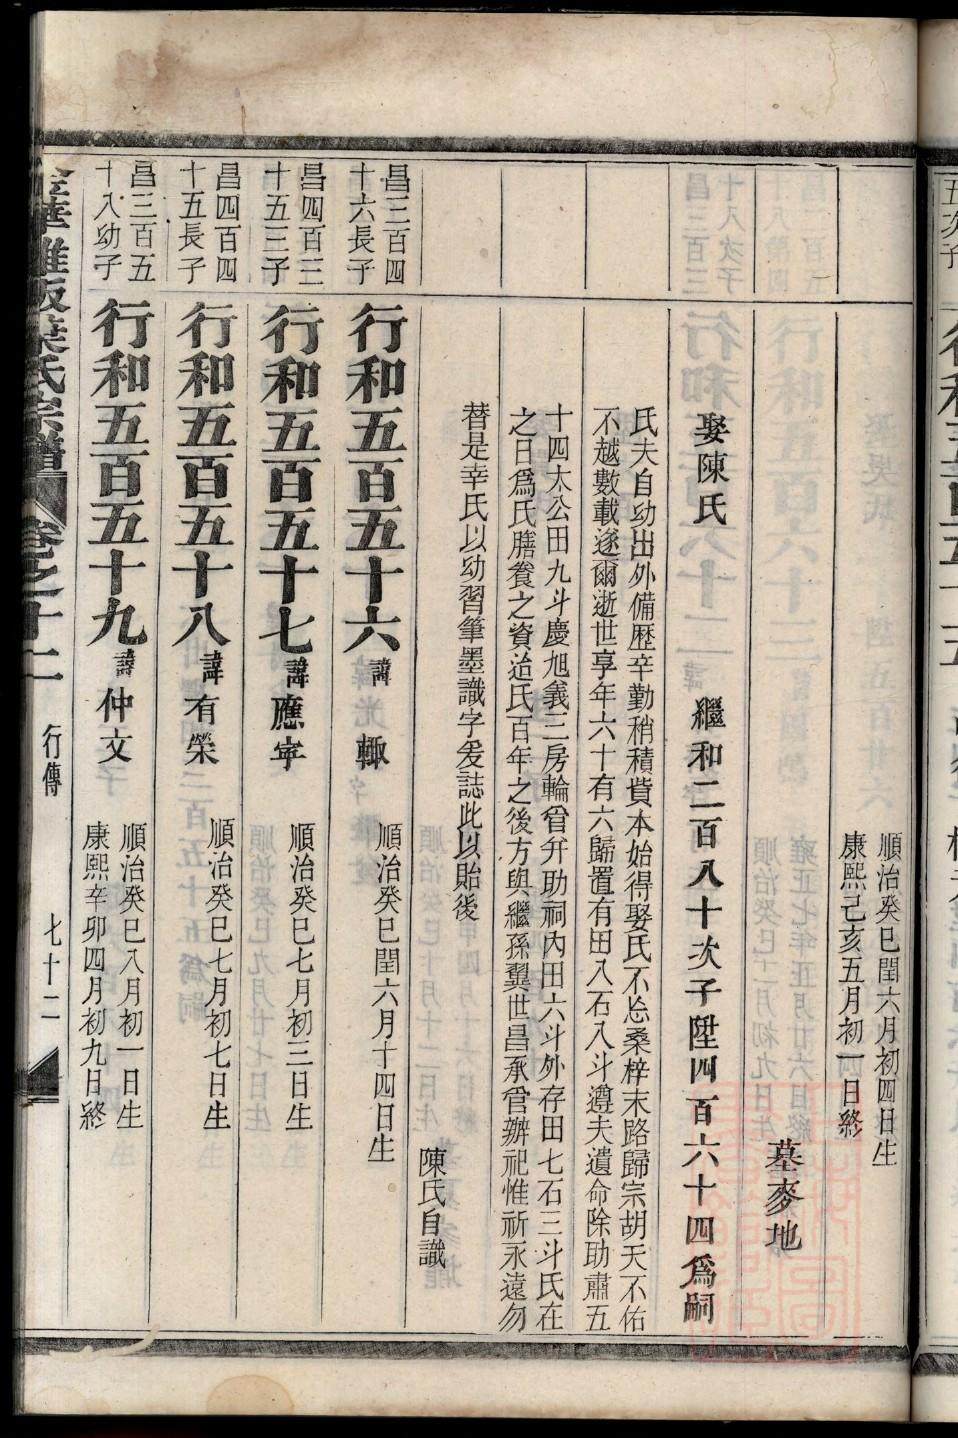 順治癸巳閏六月初四日生
康熙己亥五月初一日終
墓麥地
娶陳氏 繼和二百八十次子陞四百六十四爲嗣
氏夫自幼出外備歷辛勤稍積貲本始得娶氏不忘桑梓末路歸宗胡天不佑
不越數載遂爾逝世享年六十有六歸置有田八石八斗遵夫遺命除助肅五
十四太公田九斗慶旭義三房輪管幷助祠內田六斗外存田七石三斗氏在
之日爲氏膳養之資迨氏百年之後方與繼孫翼世昌承管辦祀惟祈永遠勿
替是幸氏以幼習筆墨識字爰誌此以貽後
陳氏自識
昌三百四
十六長子
行和五百五十六 諱 輙
順治癸巳閏六月十四日生
昌四百三
十五三子
行和五百五十七 諱 應
順治癸巳七月初三日生
昌四百四
十五長子
行和五百五十八 諱 有榮
順治癸巳七月初七日生
昌三百五
十八幼子
行和五百五十九 諱 仲文
順治癸巳八月初一日生
康熙辛卯四月初九日終
氏宗譜 卷之十二 行傳 七十二